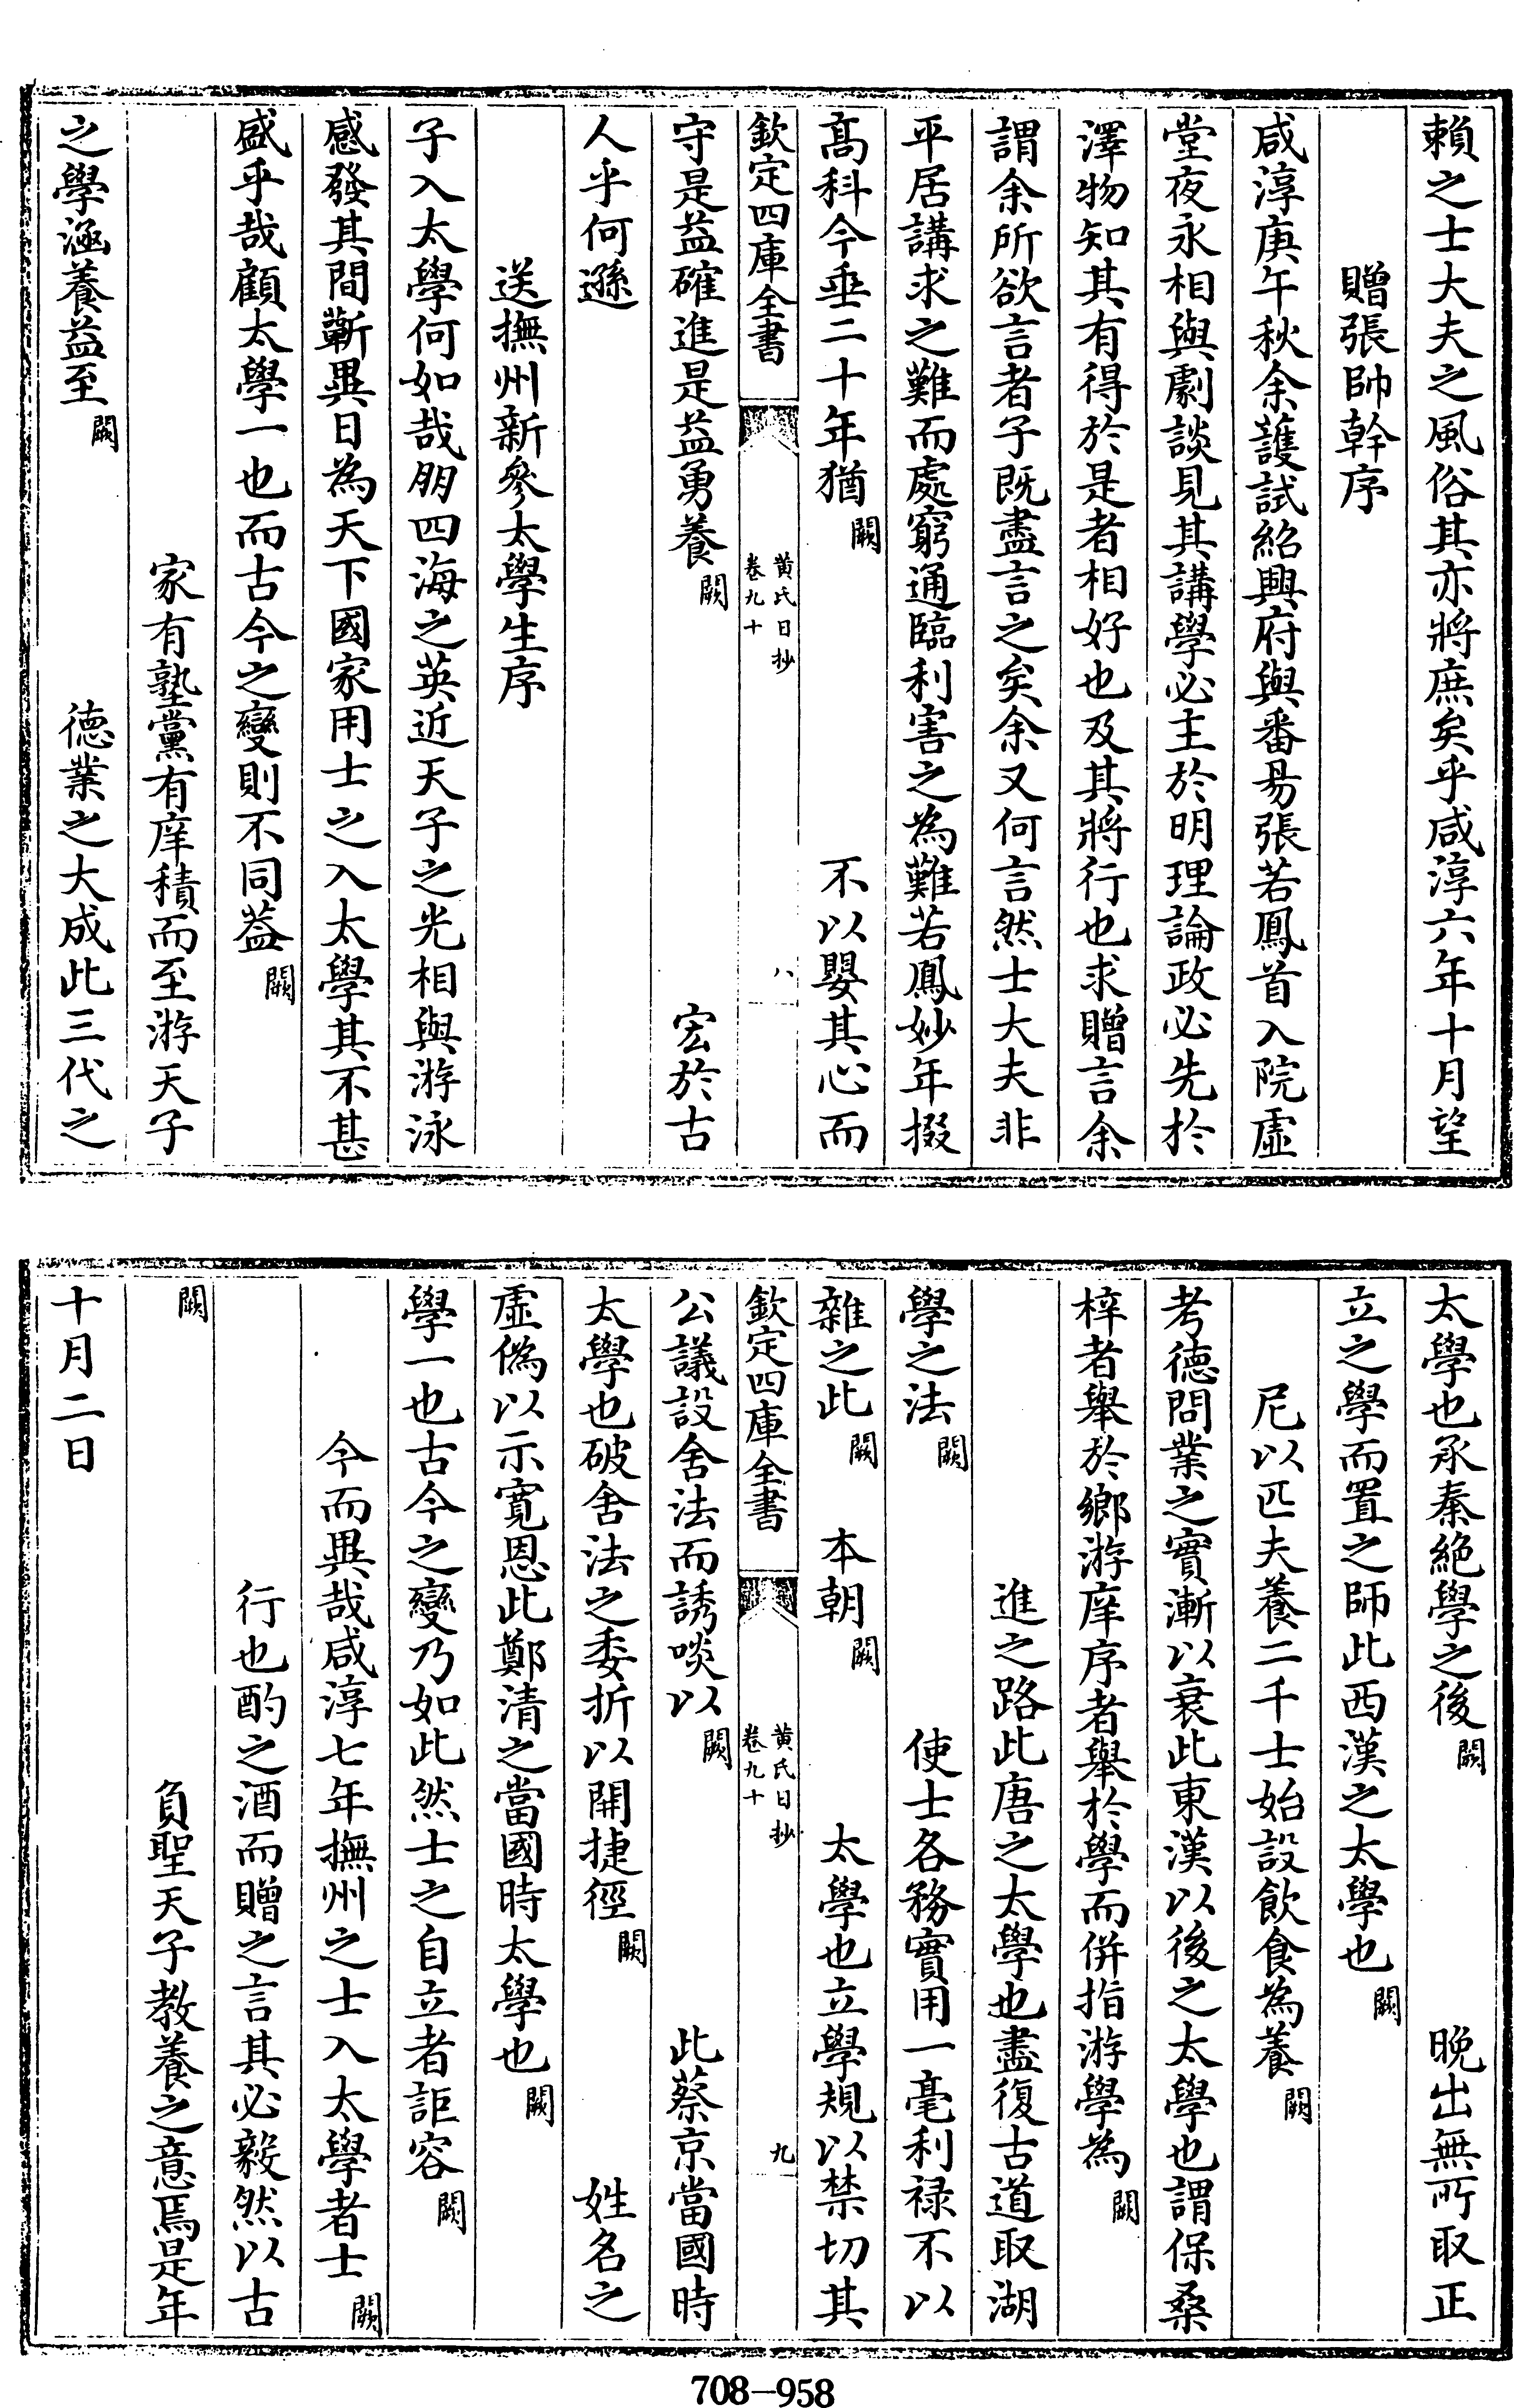 賴之士大夫之風俗其亦將庶矣乎咸淳六年十月望
贈張帥幹序
咸淳庚午秋余護試紹興府與番昜張若鳳首入院虛
堂夜永相與劇談見其講學必主於明理論政必先於
澤物知其有得於是者相好也及其將行也求贈言余
謂余所欲言者子既盡言之矣余又何言然士大夫非
平居講求之難而處窮通臨利害之為難若鳳妙年掇
髙科今垂二十年猶闕 不以嬰其心而
欽定四庫全書 黄氏日抄 卷九十 八
守是益確進是益勇養闕 宏於古
人乎何遜
送撫州新參太學生序
子入太學何如哉朋四海之英近天子之光相與游泳
感發其間蘄異日為天下國家用士之入太學其不甚
盛乎哉顧太學一也而古今之變則不同葢闕
家有塾黨有庠積而至游天子
之學涵養益至闕 德業之大成此三代之
太學也承秦絶學之後闕 晩出無所取正
立之學而置之師此西漢之太學也闕
尼以匹夫養二千士始設飲食為養闕
考德問業之實漸以衰此東漢以後之太學也謂保桑
梓者舉於鄉游庠序者舉於學而併指游學為闕
進之路此唐之太學也盡復古道取湖
學之法闕 使士各務實用一毫利禄不以
雜之此闕 本朝闕 太學也立學規以禁切其
欽定四庫全書 黄氏日抄 卷九十 九
公議設舍法而誘啖以闕 此蔡京當國時
太學也破舍法之委折以開捷徑闕 姓名之
虛偽以示寛恩此鄭清之當國時太學也闕
學一也古今之變乃如此然士之自立者詎容闕
今而異哉咸淳七年撫州之士入太學者士闕
行也酌之酒而贈之言其必毅然以古
闕 負聖天子教養之意焉是年
十月二日
708-958